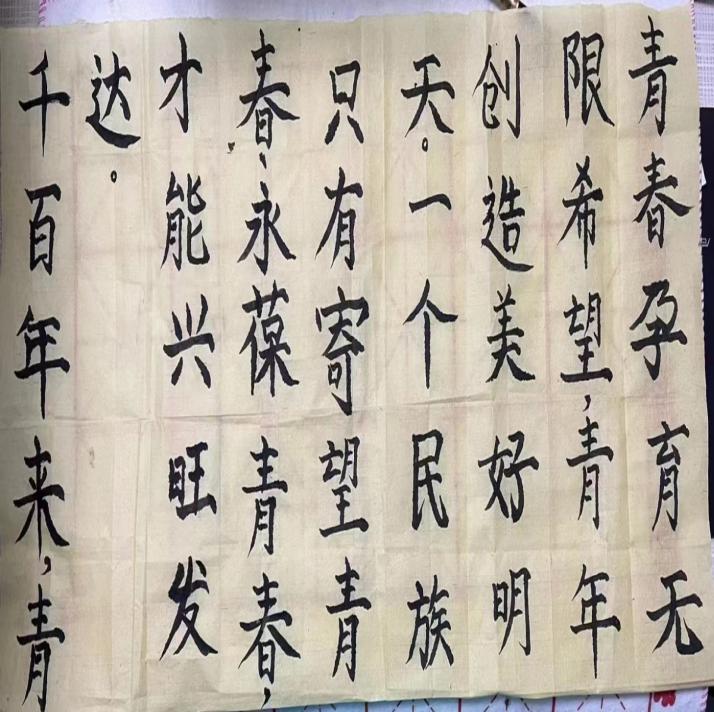 青春孕育无
限希望,青年
创造美好明
天。一个民族
只有寄望青
春、永葆青春,
才能兴旺发
达。
千百年来,青